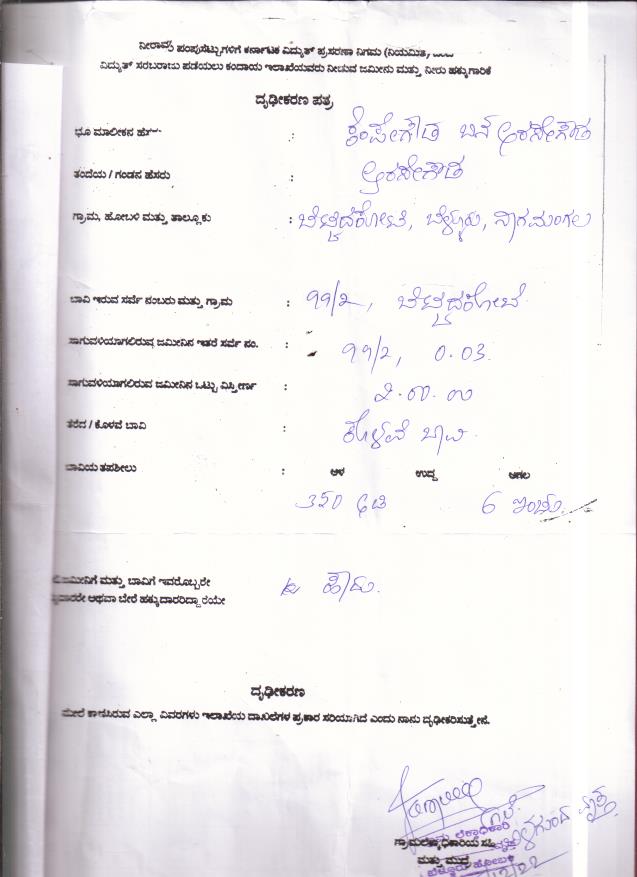 ನೀರಾವರಿ ಪಂಪುಸೆಟ್ಟುಗಳಿಗೆ ಕರ್ನಾಟಕ ವಿದ್ಯುತ್ ಪ್ರಸರಣಾ ನಿಗಮ (ನಿಯಮಿತ)
ವಿದ್ಯುತ್ ಸರಬರಾಜು ಪಡೆಯಲು ಕಂದಾಯ ಇಲಾಖೆಯವರು ನೀಡುವ ಜಮೀನು ಮತ್ತು ನೀರು ಹಕ್ಕುಗಾರಿಕೆ
ದೃಢೀಕರಣ ಪತ್ರ
ಭೂ ಮಾಲೀಕನ : ಕೆಂಪೇಗೌಡ ಬಿನ್ ಅರಸೇಗೌಡ
ತಂದೆಯ / ಗಂಡನ ಹೆಸರು : ಅರಸೇಗೌಡ
ಗ್ರಾಮ, ಹೋಬಳಿ ಮತ್ತು ತಾಲ್ಲೂಕು : ಬೆಟ್ಟದಕೋಟೆ, ಬೆಳ್ಳೂರು, ನಾಗಮಂಗಲ
ಬಾವಿ ಇರುವ ಸರ್ವೆ ನಂಬರು ಮತ್ತು ಗ್ರಾಮ : ೧೧/೩, ಬೆಟ್ಟದಕೋಟೆ
ಸಾಗುವಳಿಯಾಗಲಿರುವ ಜಮೀನಿನ ಇತರೆ ಸರ್ವೆ ನಂ. : ೧೧/೩, 0.03.
ಸಾಗುವಳಿಯಾಗಲಿರುವ ಜಮೀನಿನ ಒಟ್ಟು ವಿಸ್ತೀರ್ಣ :
ತೆರೆದ / ಕೊಳವೆ ಬಾವಿ : ಕೊಳವೆ ಬಾವಿ
ಬಾವಿಯ ತಪಶೀಲು : ಆಳ ಉದ್ದ ಅಗಲ
350 ಅಡಿ 6 ಇಂಚು.
ಜಮೀನಿಗೆ ಮತ್ತು ಬಾವಿಗೆ ಇವರೊಬ್ಬರೇ
ಅಥವಾ ಬೇರೆ ಹಕ್ಕುದಾರರಿದ್ದಾರೆಯೇ ಹೌದು.
ದೃಢೀಕರಣ
ಮೇಲೆ ಕಾಣಿಸಿರುವ ಎಲ್ಲಾ ವಿವರಗಳು ಇಲಾಖೆಯ ದಾಖಲೆಗಳ ಪ್ರಕಾರ ಸರಿಯಾಗಿದೆ ಎಂದು ನಾನು ದೃಢೀಕರಿಸುತ್ತೇನೆ.
ಗ್ರಾಮಲೆಕ್ಕಾಧಿಕಾರಿಯ ಸಹಿ
ಮತ್ತು ಮುದ್ರೆ
ಬೆಳ್ಳೂರು ಹೋಬಳಿ